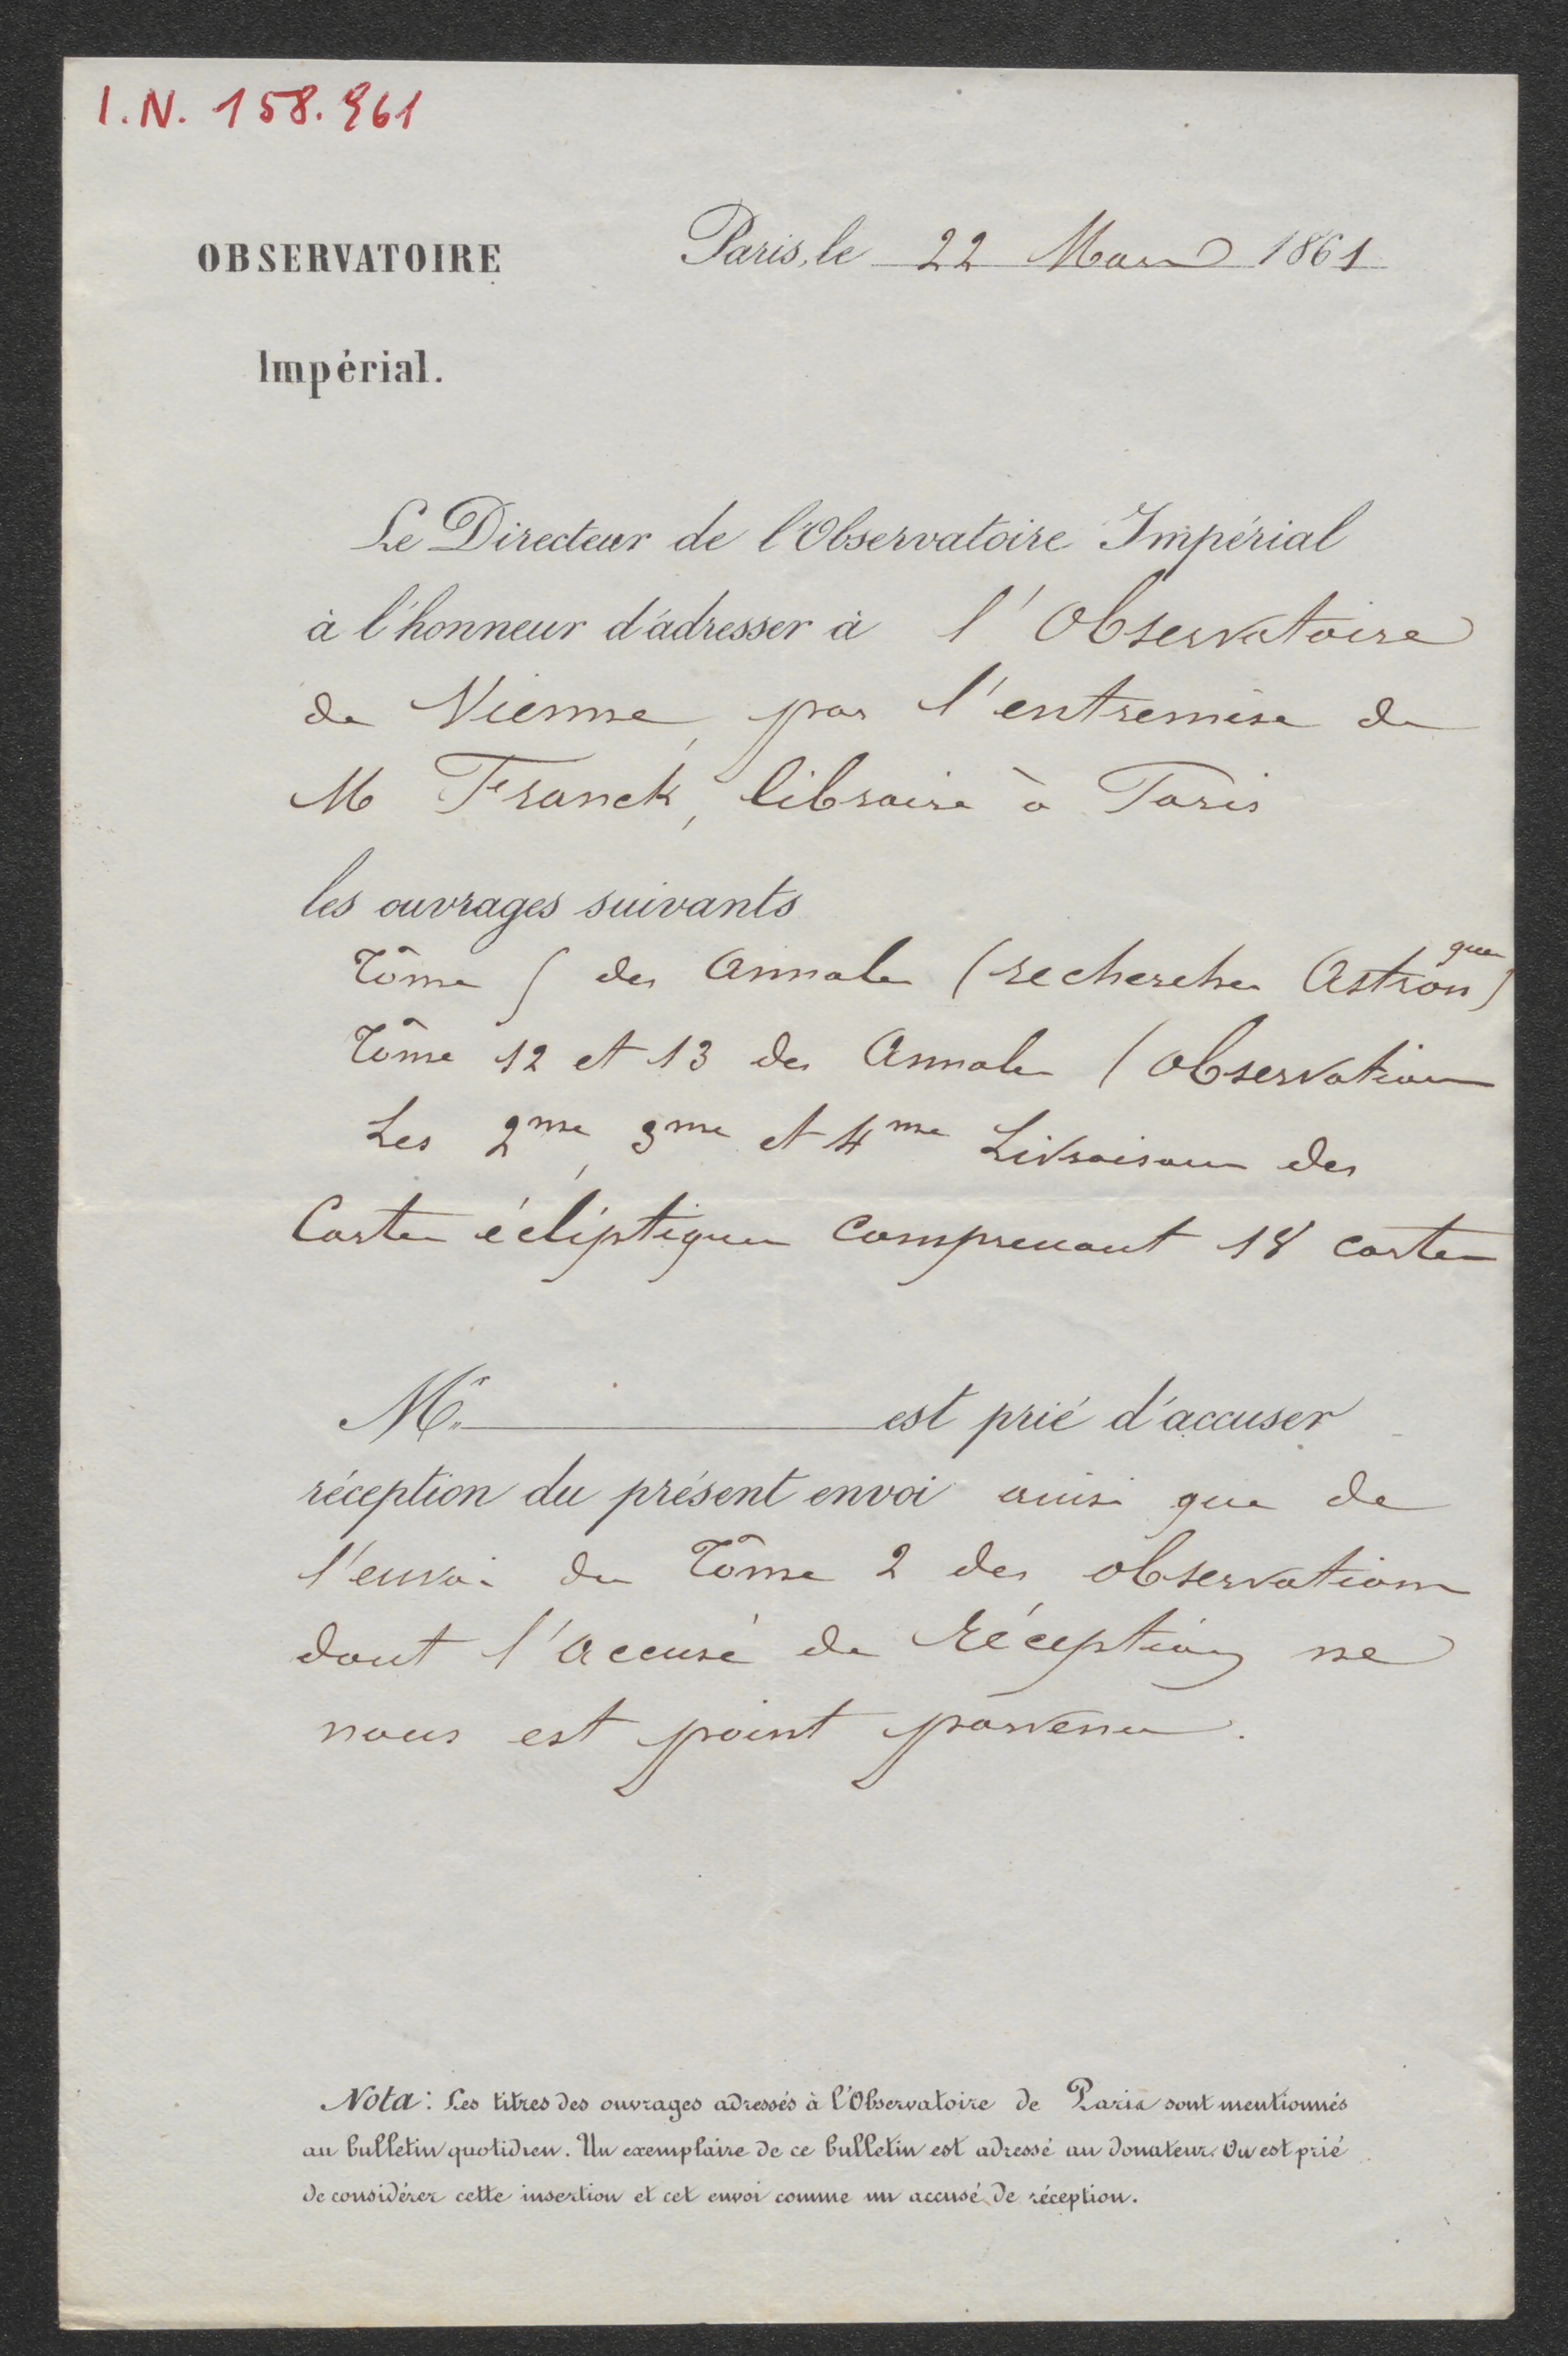 I.N. 158.961
OBSERVATOIRE
Impérial.
Paris, le 22 Mars 1861
Le Directeur de l'Observatoire Impérial
à l'honneur d'adresser à l'Observatoire
de Vienne, par l'entremise de
M Franck, libraire à Paris
les ouvrages suivants
Tôme 5 des Annales (recherches Astron^ques)
Tôme 12 et 13 des Annales (Observations
Les 2me, 3me et 4me Livraisons des
Cartes écliptiques comprenant 18 cartes
Mr. est prié d'accuser
réception du présent envoi ainsi que de
l'envoi du Tôme 2 des observations
dont l'accusé de réception ne
nous est point parvenu.
Nota: Les titres des ouvrages adressés à l'Observatoire de Paris sont mentionnés
au bulletin quotidien. Un exemplaire de ce bulletin est adressé au donateur. On est prié
de considérer cette insertion et cet envoi comme un accusé de réception.